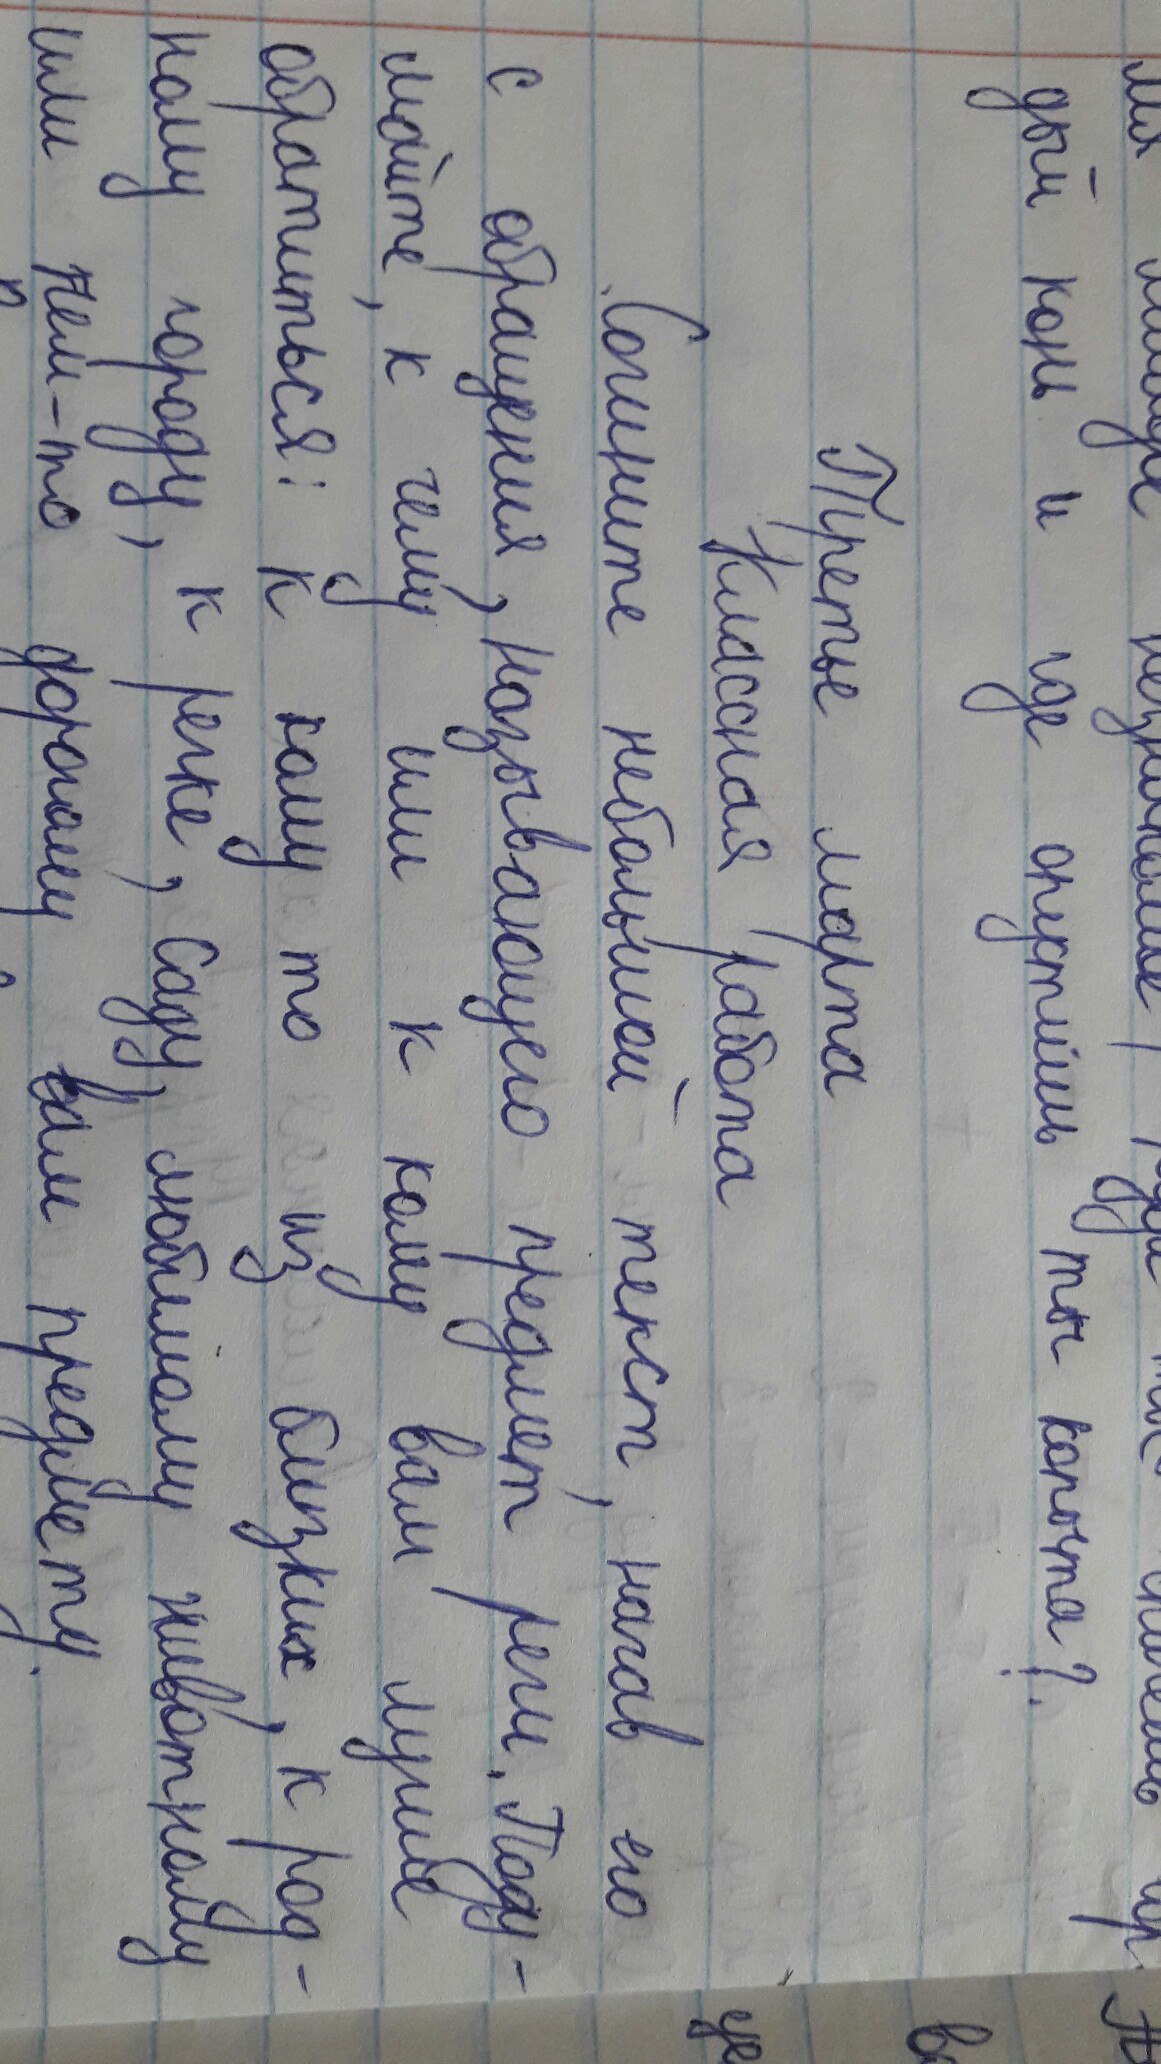 дый конь и где опустишь ты копыта?
Третье марта
Классная работа
Сочините небольшой текст, начав его
с обращения, называющего предмет речи. Поду-
майте, к чему или к кому вам лучше
обратиться: к кому то из близких, к род-
ному городу, к речке, саду, любимому животному
или чем-то дорогому вам предмету.